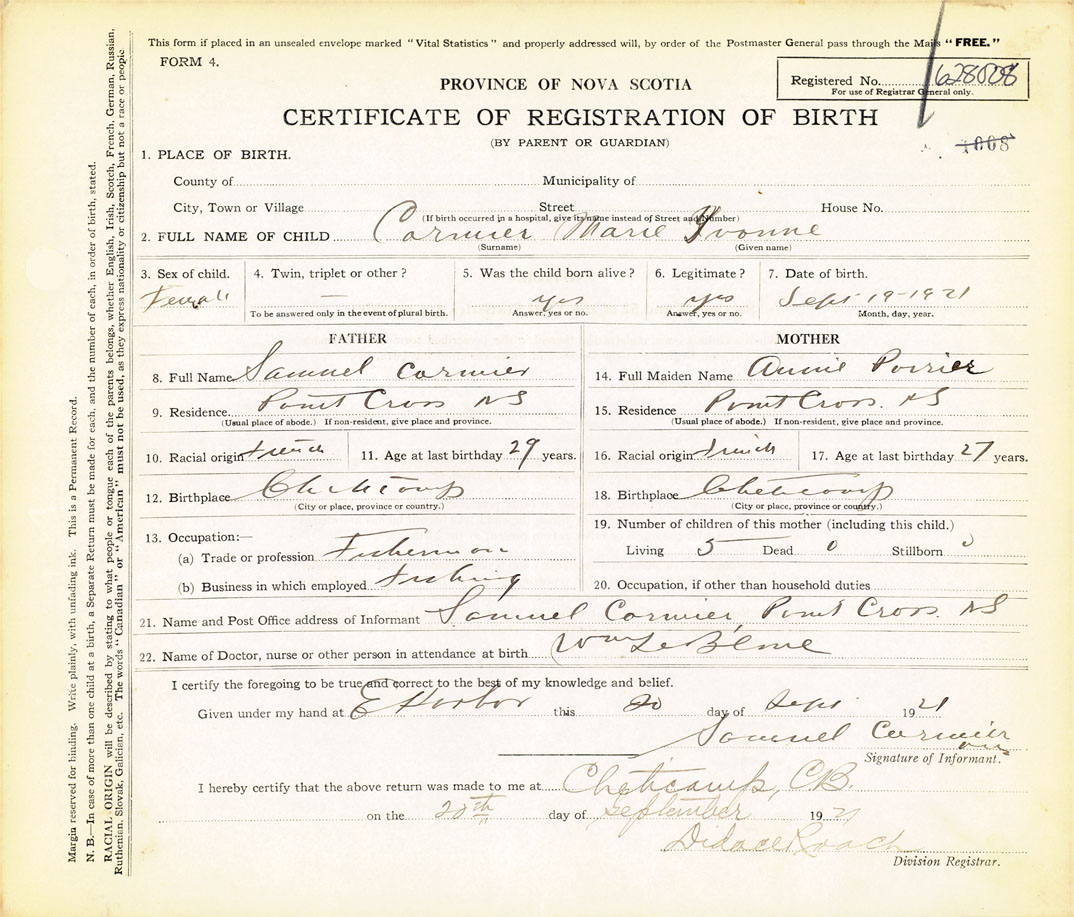 This form if placed in an unsealed envelope marked "Vital Statistics" and properly addressed will, by order of the Postmaster General pass through the Mails "FREE."
FORM 4.
Registered No. 628508
For use of Registrar General only.
PROVINCE OF NOVA SCOTIA
CERTIFICATE OF REGISTRATION OF BIRTH
(BY PARENT OR GUARDIAN)
1008
1. PLACE OF BIRTH.
County of Municipality of
City, Town or Village Street House No.
(If birth occurred in a hospital, give its name instead of Street and Number)
2. FULL NAME OF CHILD Cormier Marie Yvonne
(Surname) (Given name)
3. Sex of child. 4. Twin, triplet or other? 5. Was the child born alive? 6. Legitimate? 7. Date of birth.
— yes yes Sept 19-1921
To be answered only in the event of plural birth. Answer, yes or no. Answer, yes or no. Month, day, year.
FATHER
8. Full Name Samuel Cormier
9. Residence Point Cross NS
(Usual place of abode.) If non-resident, give place and province.
10. Racial origin french 11. Age at last birthday 29 years.
12. Birthplace Cheticamp
(City or place, province or country.)
13. Occupation:—
(a) Trade or profession Fisherman
(b) Business in which employed Fishing
MOTHER
14. Full Maiden Name Annie Poirier
15. Residence Point Cross. NS
(Usual place of abode.) If non-resident, give place and province.
16. Racial origin french 17. Age at last birthday 27 years.
18. Birthplace Cheticamp
(City or place, province or country.)
19. Number of children of this mother (including this child.)
Living 5 Dead 0 Stillborn 0
20. Occupation, if other than household duties
21. Name and Post Office address of Informant Samuel Cormier, Point Cross. NS
22. Name of Doctor, nurse or other person in attendance at birth Wm
I certify the foregoing to be true and correct to the best of my knowledge and belief.
Given under my hand at E Harbor this 20 day of Sept 1921
Samuel Cormier
Signature of Informant.
I hereby certify that the above return was made to me at Cheticamp, C.B.
on the 20th day of September 1921
Didace Roach
Division Registrar.
Margin reserved for binding. Write plainly, with unfading ink. This is a Permanent Record.
N. B.—In case of more than one child at a birth, a Separate Return must be made for each, and the number of each, in order of birth, stated.
RACIAL ORIGIN will be described by stating to what people or tongue each of the parents belongs, whether English, Irish, Scotch, French, German, Russian,
Ruthenian, Slovak, Galician, etc. The words "Canadian" or "American" must not be used, as they express nationality or citizenship but not a race or people